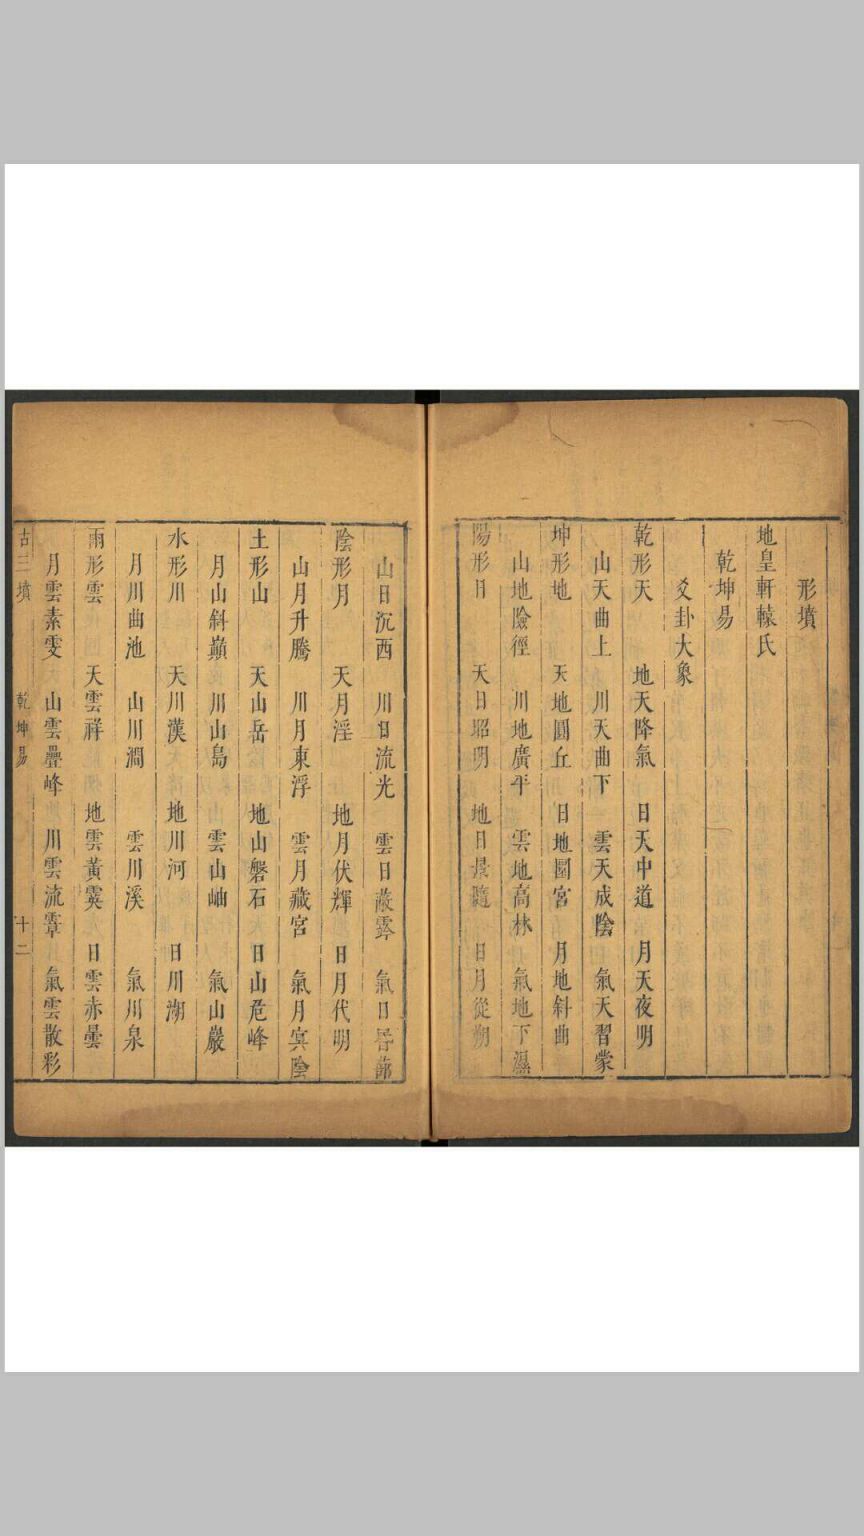 形墳
地皇軒轅氏
乾坤易
爻卦大象
乾形天 地天降氣 日天中道 月天夜明
山天曲上 川天曲下 雲天成陰 氣天習蒙
坤形地 天地圓丘 日地圜宮 月地斜曲
山地險徑 川地廣平 雲地高林 氣地下濕
陽形日 天日昭明 地日景隨 日月從朔
山日沉西 川日流光 雲日蔽雺 氣日昬蔀
陰形月 天月淫 地月伏輝 日月代明
山月升騰 川月東浮 雲月藏宮 氣月冥陰
土形山 天山岳 地山磐石 日山危峰
月山斜巔 川山島 雲山岫 氣山巖
水形川 天川漢 地川河 日川湖
月川曲池 山川澗 雲川溪 氣川泉
雨形雲 天雲祥 地雲黃霙 日雲赤曇
月雲素雯 山雲疊峰 川雲流䨴 氣雲散彩
古三墳 乾坤易 十二